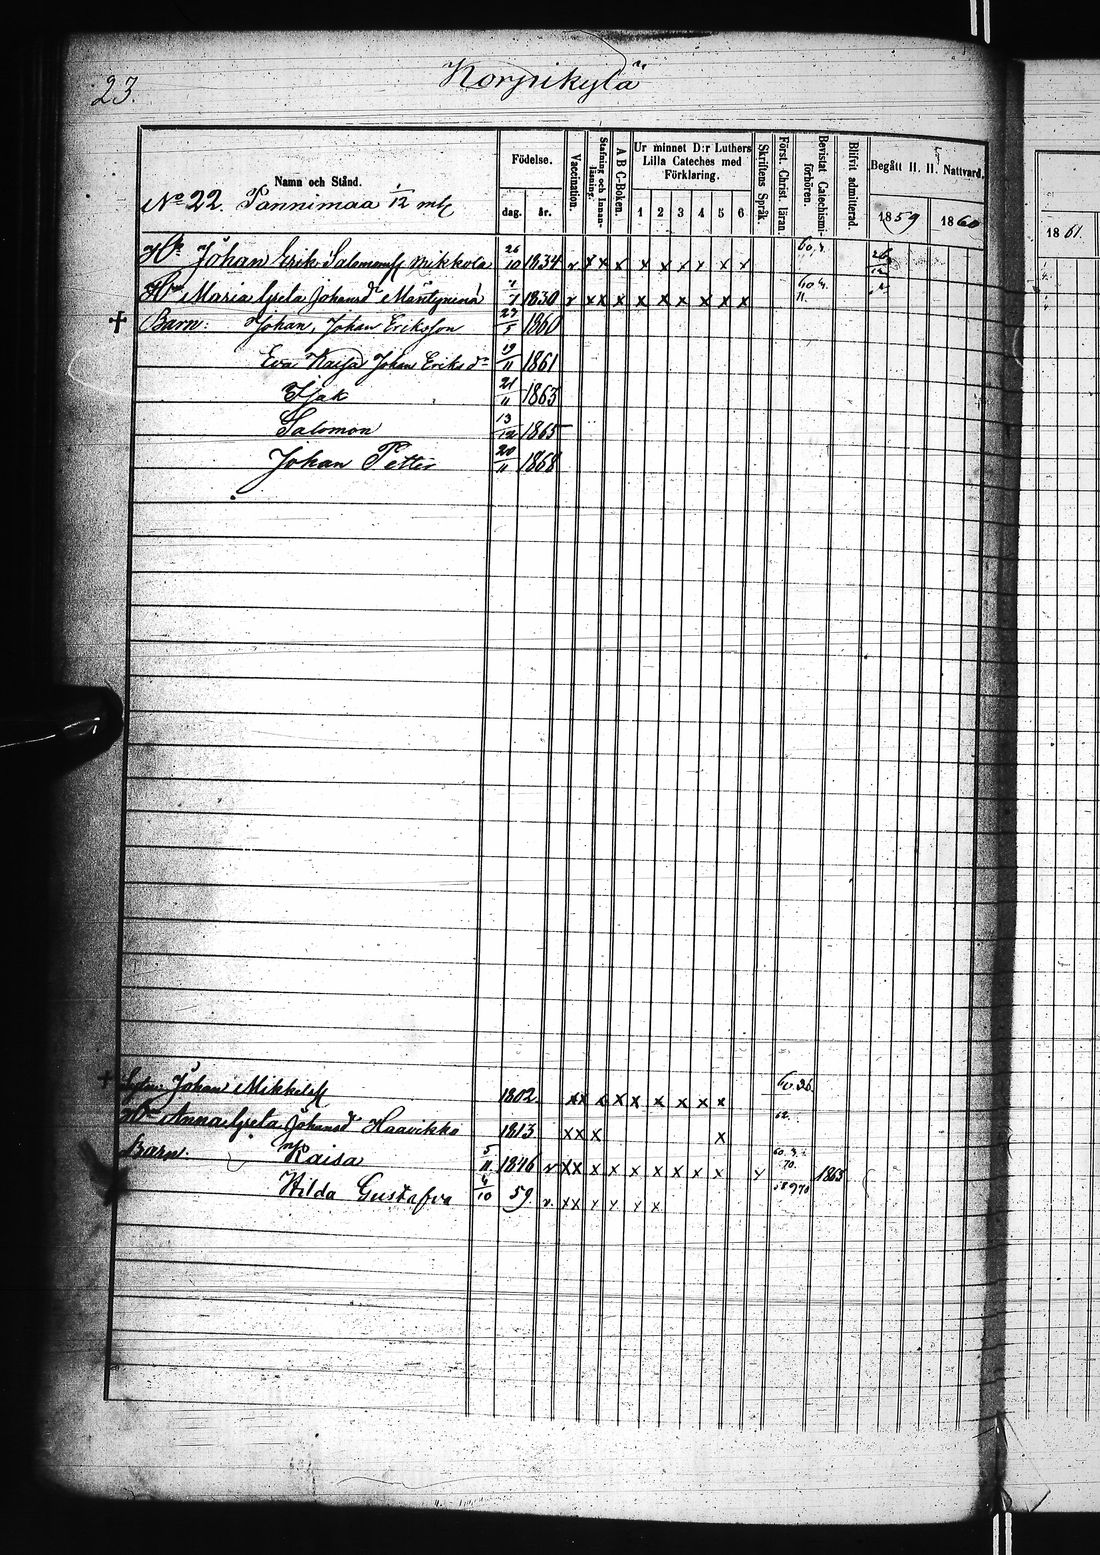 23.
Korpikylä
Namn och Stånd.
Födelse.
dag. år.
Vaccination.
Stafning och Innanläsning.
A B C-Boken.
Ur minnet D:r Luthers Lilla Cateches med Förklaring.
1 2 3 4 5 6
Skriftens Språk.
Först. Christ. läran.
Bevistat Catechismiförhören.
Blifvit admitterad.
Begått H. H. Nattvard.
1859 1860
1861.
No 22. Tannimaa 1/12 mtl
Johan Erik Salomonss Mikkola 26/10 1834 v x x x x x x x x x 26/12
Maria Greta Johansd Mäntyniemi 1830 v x x x x x x x x x
+ Barn: Johan, Johan Eriksson 27/5 1860
Eva Kaisa Johan Eriks dr 19/11 1861
Isak 21/11 1863
Salomon 13/12 1865
Johan Petter 20/11 1868
+ Johan Mikkelss 1802. x x x x x x x x x
Anna Greta Johansd Haavikko 1813 x x x x 62.
Barn: Kaisa 5/11 1846 v x x x x x x x x x 70. 1865
Hilda Gustafva 4/10 59. v. x x x x x x